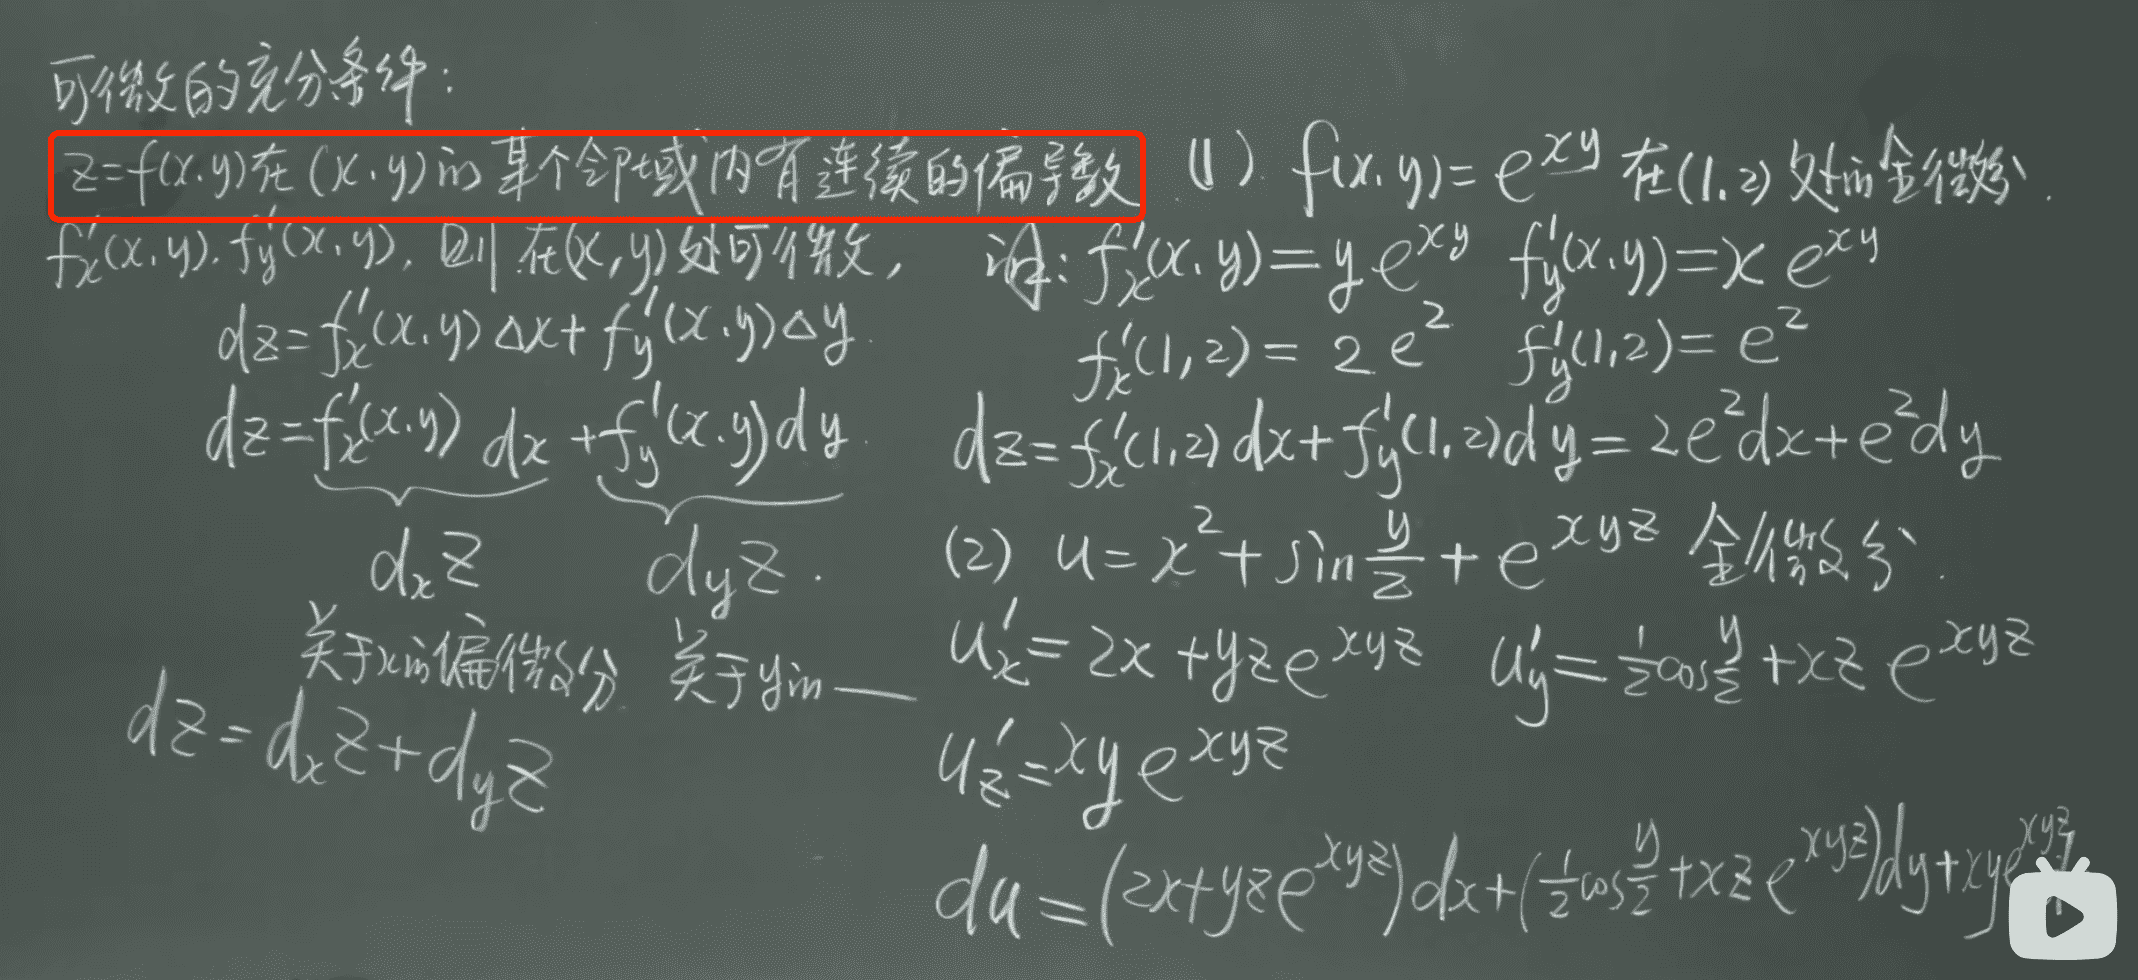 可微的充分条件:
z=f(x.y)在(x.y)的某个邻域内有连续的偏导数
f'x(x.y).f'y(x.y),则在(x,y)处可微,
dz=f'x(x.y)△x+f'y(x.y)△y.
dz=f'x(x.y)dx+f'y(x.y)dy.
dxz dyz.
关于x的偏微分 关于y的——
dz=dxz+dyz
(1).f(x.y)=e^xy在(1.2)处的全微分.
f'x(x.y)=ye^xy f'y(x.y)=xe^xy
f'x(1,2)=2e² f'y(1,2)=e²
dz=f'x(1,2)dx+f'y(1,2)dy=2e²dx+e²dy
(2) u=x²+sin y/2+e^xyz 全微分.
u'x=2x+yze^xyz u'y=1/2cos y/2+xze^xyz
u'z=xye^xyz
du=(2x+yze^xyz)dx+(1/2cos y/2+xze^xyz)dy+xye^xyz